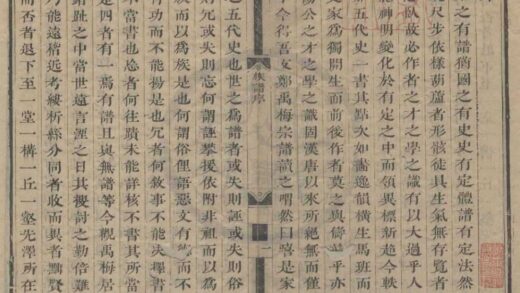 之有譜猶國之有史史有定體譜有定法然
尺步依樣葫蘆者形骸徒具生氣無存覽者
臥故必作者之才之學之識有以大過乎人
能神明變化於有定之中而領異標新今軼
家為獨開生面前後作者莫之與儔乎亦
五代史一書其點次如畵逸韻橫生馬班而
陽公之才之學之識固漢唐以來所絕無而僅
今得吾友鄭禹梅宗譜讀之喟然曰嘻是家
族譜序
一
之五代史也世之為譜者或失則誣或失則俗
則冗或失則忘何謂誣攀援依附非祖而以為
而以為族是也何謂俗俚語惡文有能而不
有功而不能揚是也冗者何敘事不能擇書
不當書也忘者何往蹟未能詳核不書其所當
是四者有一焉有譜且與無譜等今觀禹梅居
錯趾之中當世遠言湮之日其搜討之勤倍難
乃能遠稽近考縷析縣分同者收而異者黜賢
而否者退下至一堂一構一丘一壑先澤所在